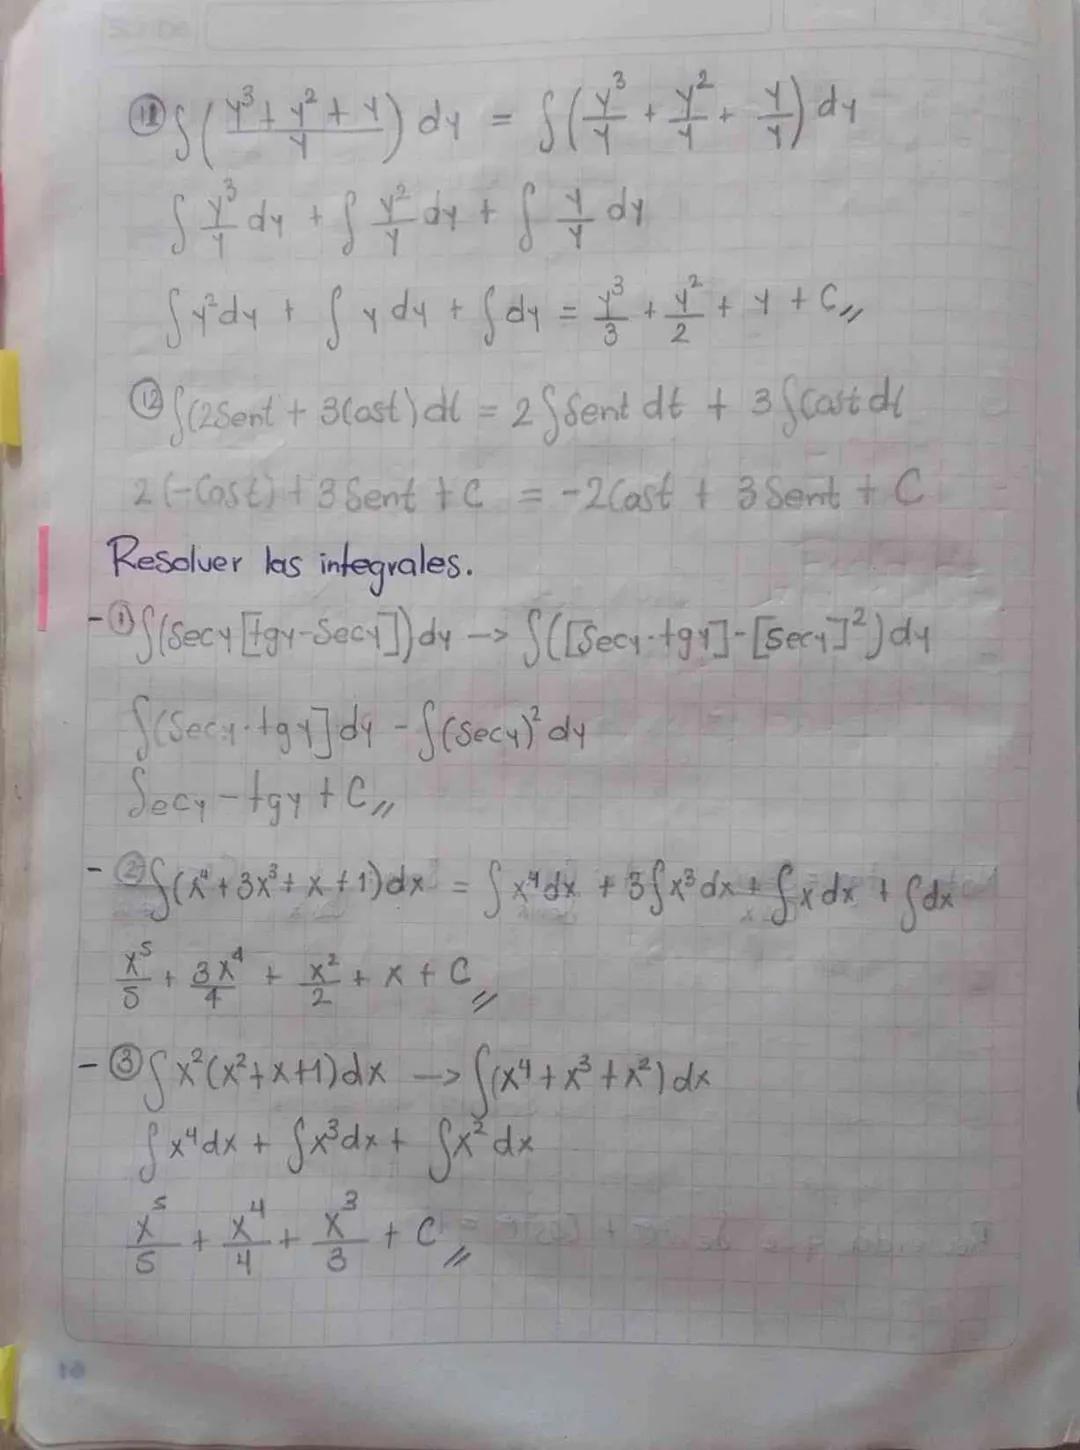 ⑪ ∫(y³ + y² + y / y) dy = ∫(y³/y + y²/y + y/y) dy
∫ y³/y dy + ∫ y²/y dy + ∫ y/y dy
∫y²dy + ∫y dy + ∫dy = y³/3 + y²/2 + y + C//
⑫ ∫(2Sent + 3Cost)dt = 2∫Sent dt + 3∫Cost dt
2(-Cost) + 3Sent + C = -2Cost + 3Sent + C
Resolver las integrales.
-① ∫(Secy[tgy-Secy])dy -> ∫([Secy·tgy]-[Secy]²)dy
∫(Secy·tgy]dy - ∫(Secy)²dy
Secy - tgy + C//
-② ∫(x⁴+3x³+x+1)dx = ∫x⁴dx + 3∫x³dx + ∫xdx + ∫dx
x⁵/5 + 3x⁴/4 + x²/2 + x + C//
-③ ∫x²(x²+x+1)dx -> ∫(x⁴+x³+x²)dx
∫x⁴dx + ∫x³dx + ∫x²dx
x⁵/5 + x⁴/4 + x³/3 + C//